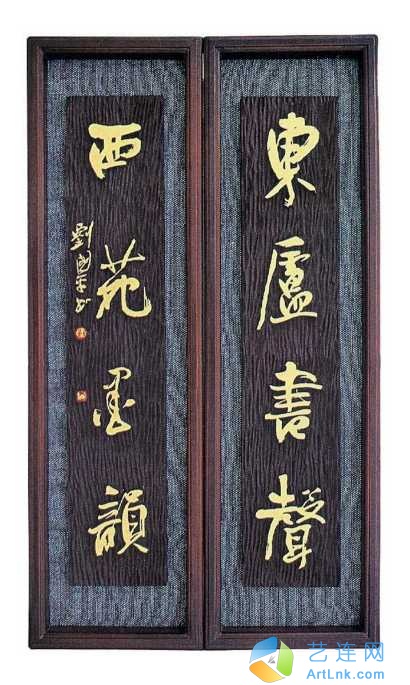 東廬書聲
西苑墨韻
劉國平书
艺连网
ArtLnk.com